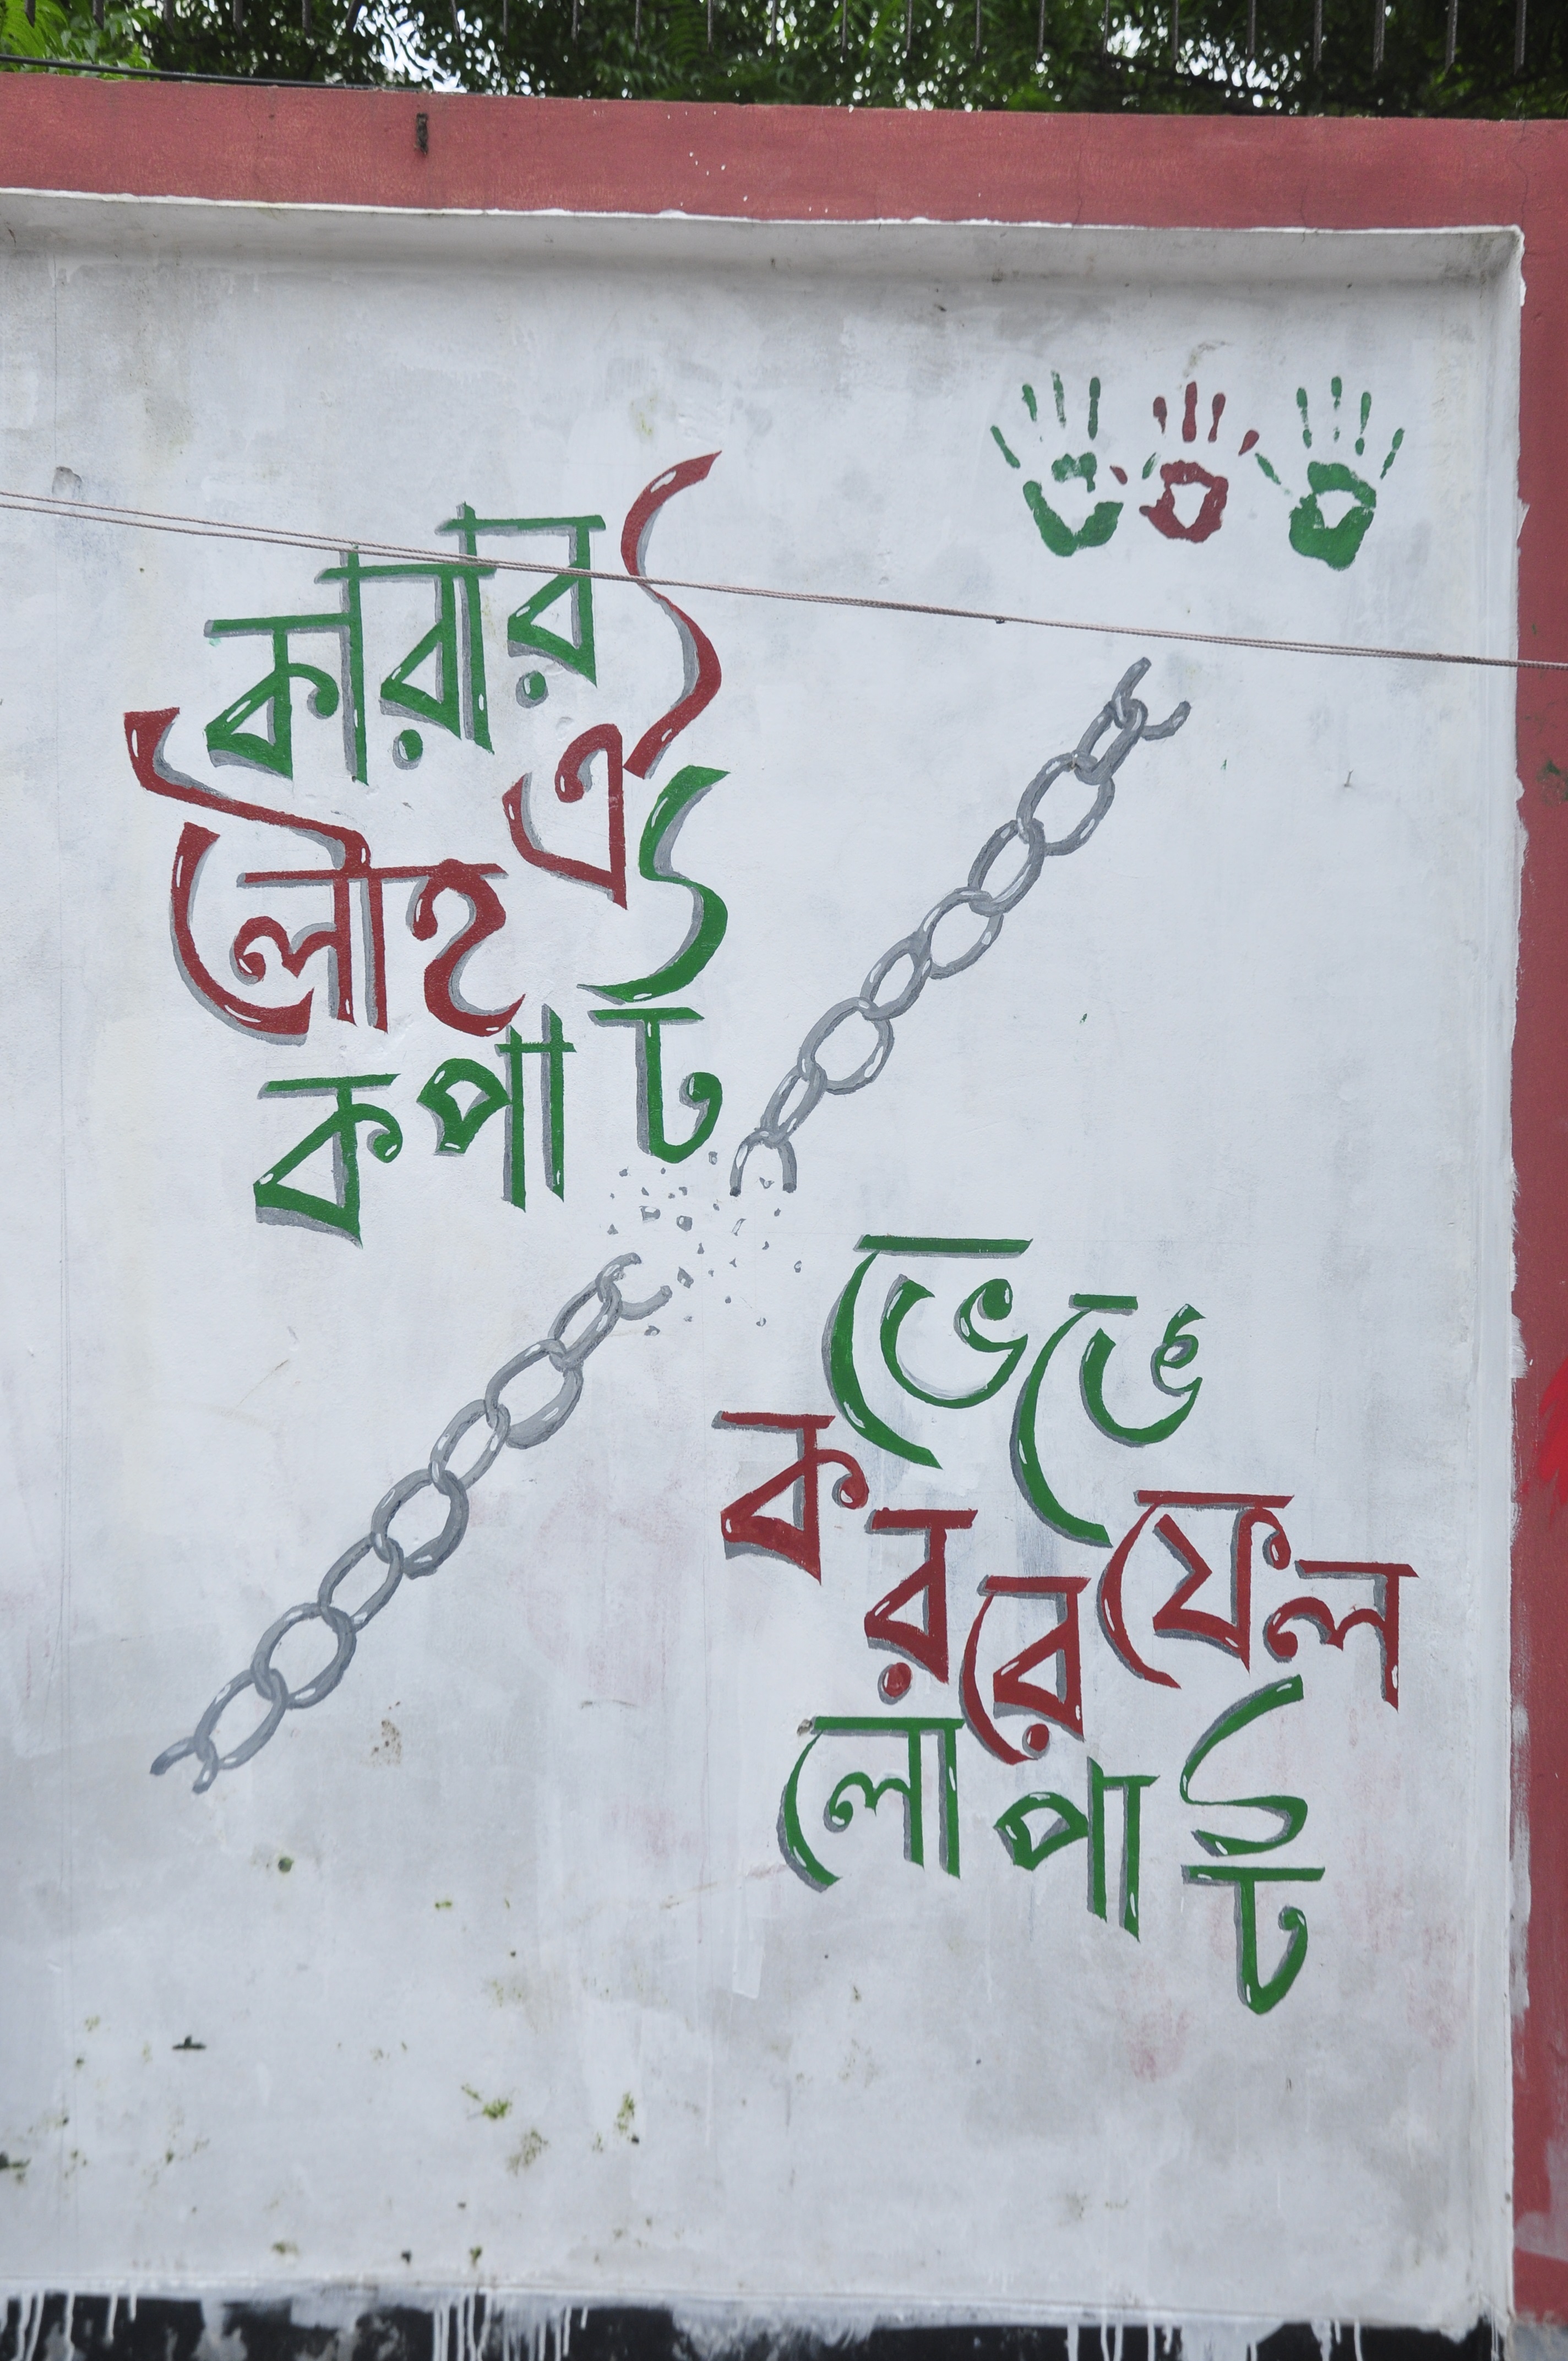 কারার
ঐ
লৌহ
কপাট
ভেঙে
কর রে ফেল
লোপাট